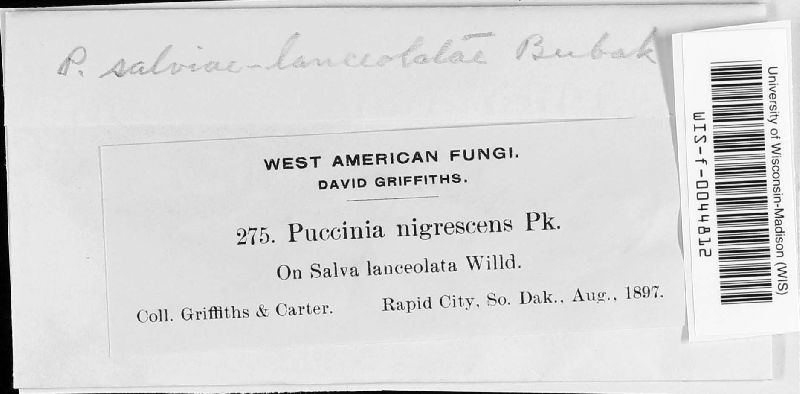 P. salviae-lanceolatae Bubak
WEST AMERICAN FUNGI.
DAVID GRIFFITHS.
275. Puccinia nigrescens Pk.
On Salva lanceolata Willd.
Coll. Griffiths & Carter. Rapid City, So. Dak., Aug., 1897.
University of Wisconsin-Madison (WIS)
WIS-f-0044812